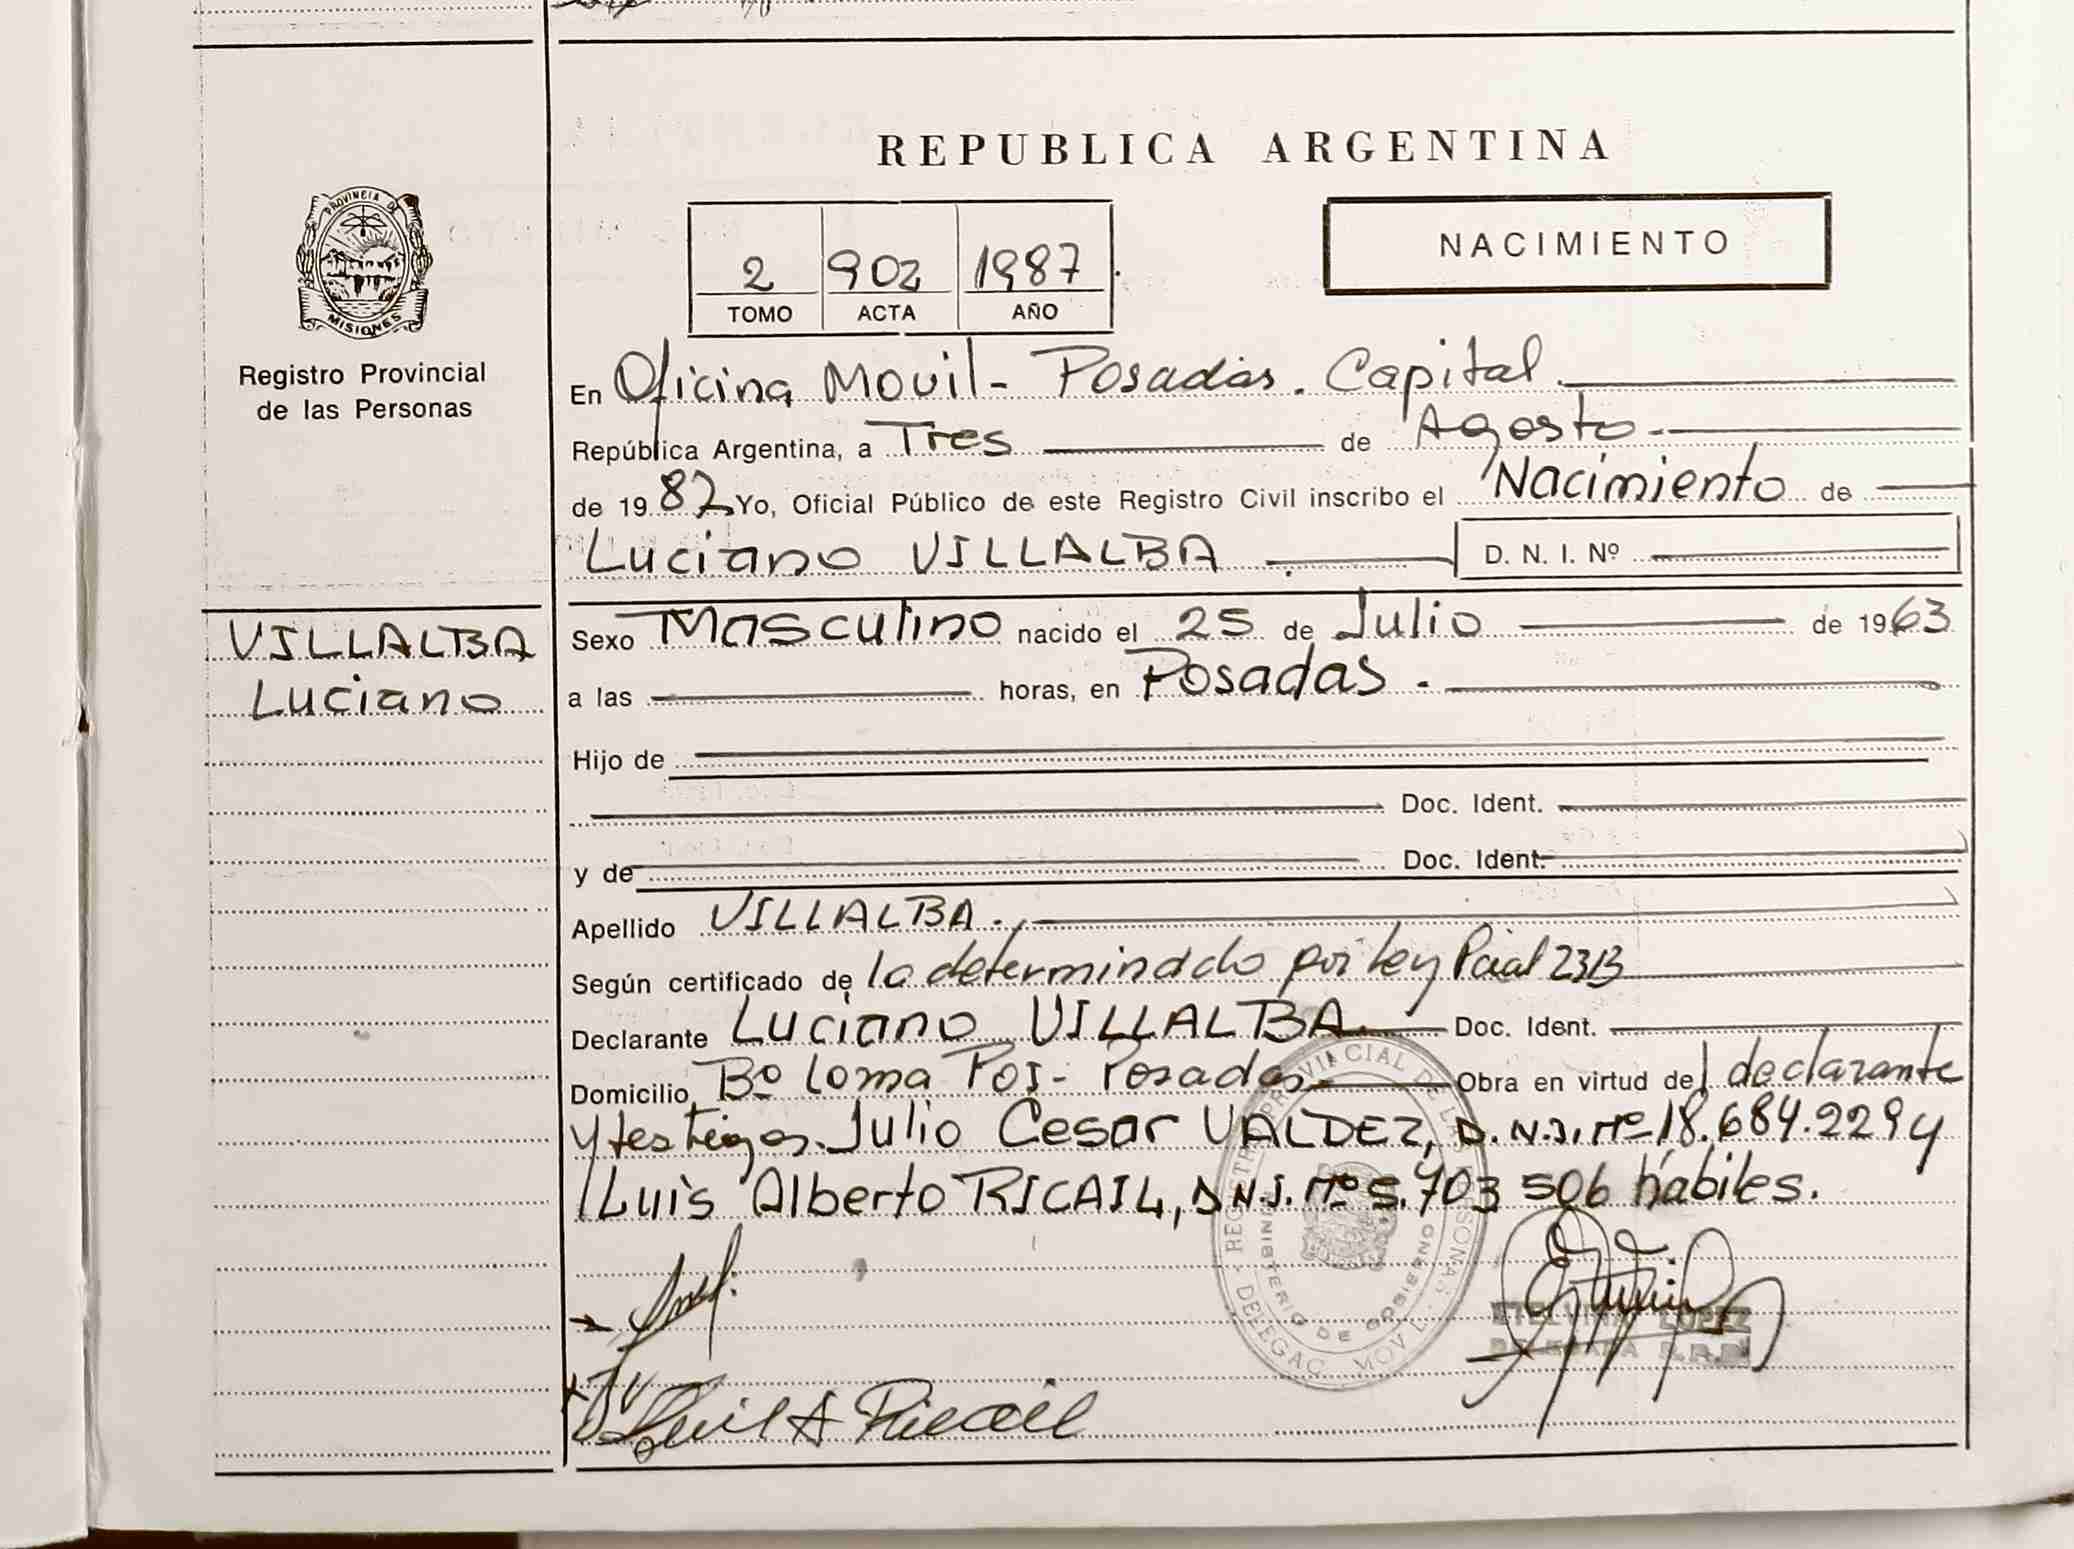 REPUBLICA ARGENTINA
NACIMIENTO
2 902 1987
TOMO ACTA AÑO
PROVINCIA DE
MISIONES
Registro Provincial
de las Personas
En Oficina Movil - Posadas. Capital
República Argentina, a Tres de Agosto
de 1987 Yo, Oficial Público de este Registro Civil inscribo el Nacimiento de
Luciano VILLALBA D. N. I. Nº
VILLALBA
Luciano
Sexo Masculino nacido el 25 de Julio de 1963
a las horas, en Posadas.
Hijo de
Doc. Ident.
y de Doc. Ident.
Apellido VILLALBA.
Según certificado de lo determinado por Ley Pcial 2313
Declarante Luciano VILLALBA Doc. Ident.
Domicilio Bº Loma Poi - Posadas Obra en virtud del declarante
y testigos. Julio Cesar VALDEZ, D.N.I. Nº 18.684.229 y
Luis Alberto RICAIL, D.N.I. Nº 5.703 506 hábiles.
REGISTRO PROVINCIAL DE LAS PERSONAS
MINISTERIO DE GOBIERNO
DELEGAC. MOVIL
ETELVINA LOPEZ
Luis A Ricail